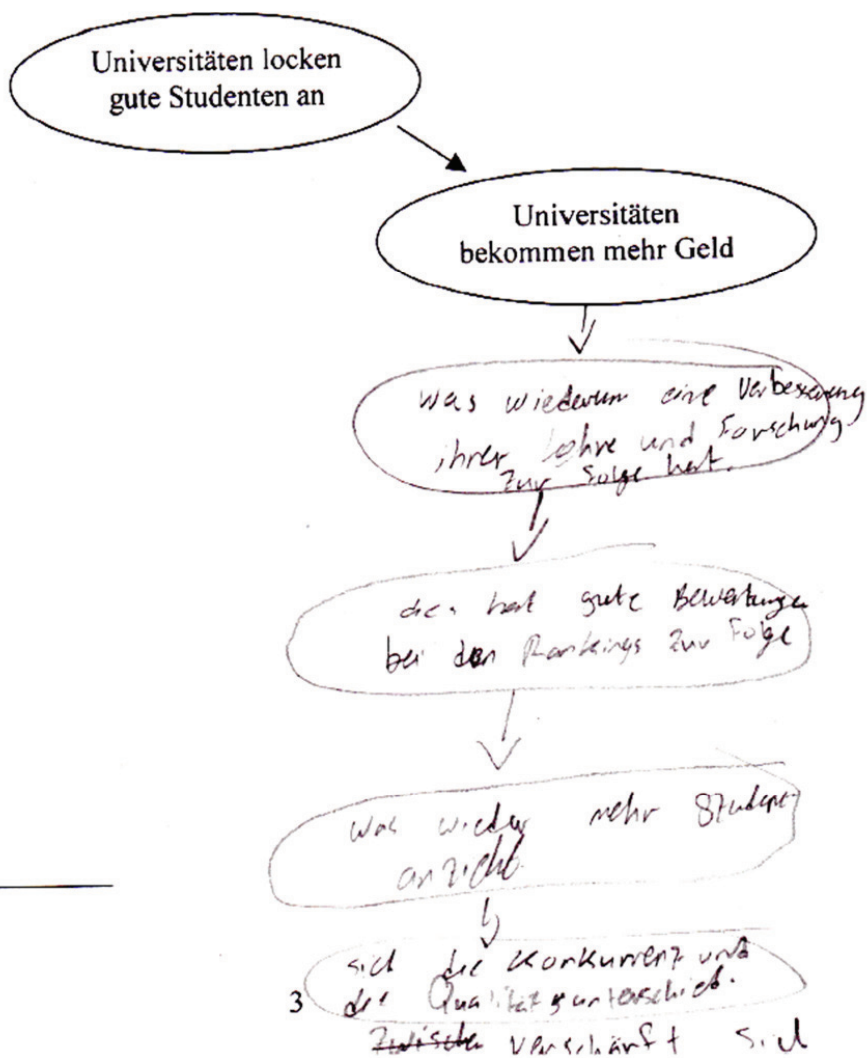 Universitäten locken
gute Studenten an
Universitäten
bekommen mehr Geld
was wiederum eine Verbesserung
ihrer Lehre und Forschung
zur Folge hat.
hat gute Bewertungen
bei den Rankings zur Folge
was wieder mehr
anzieht
sich die Konkurrenz und
3
Zwische verschärft sich